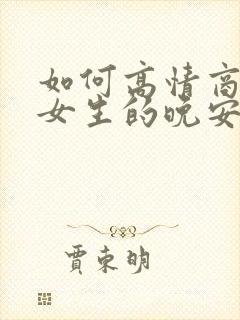 如何高情商
女生的晚安
贾东明